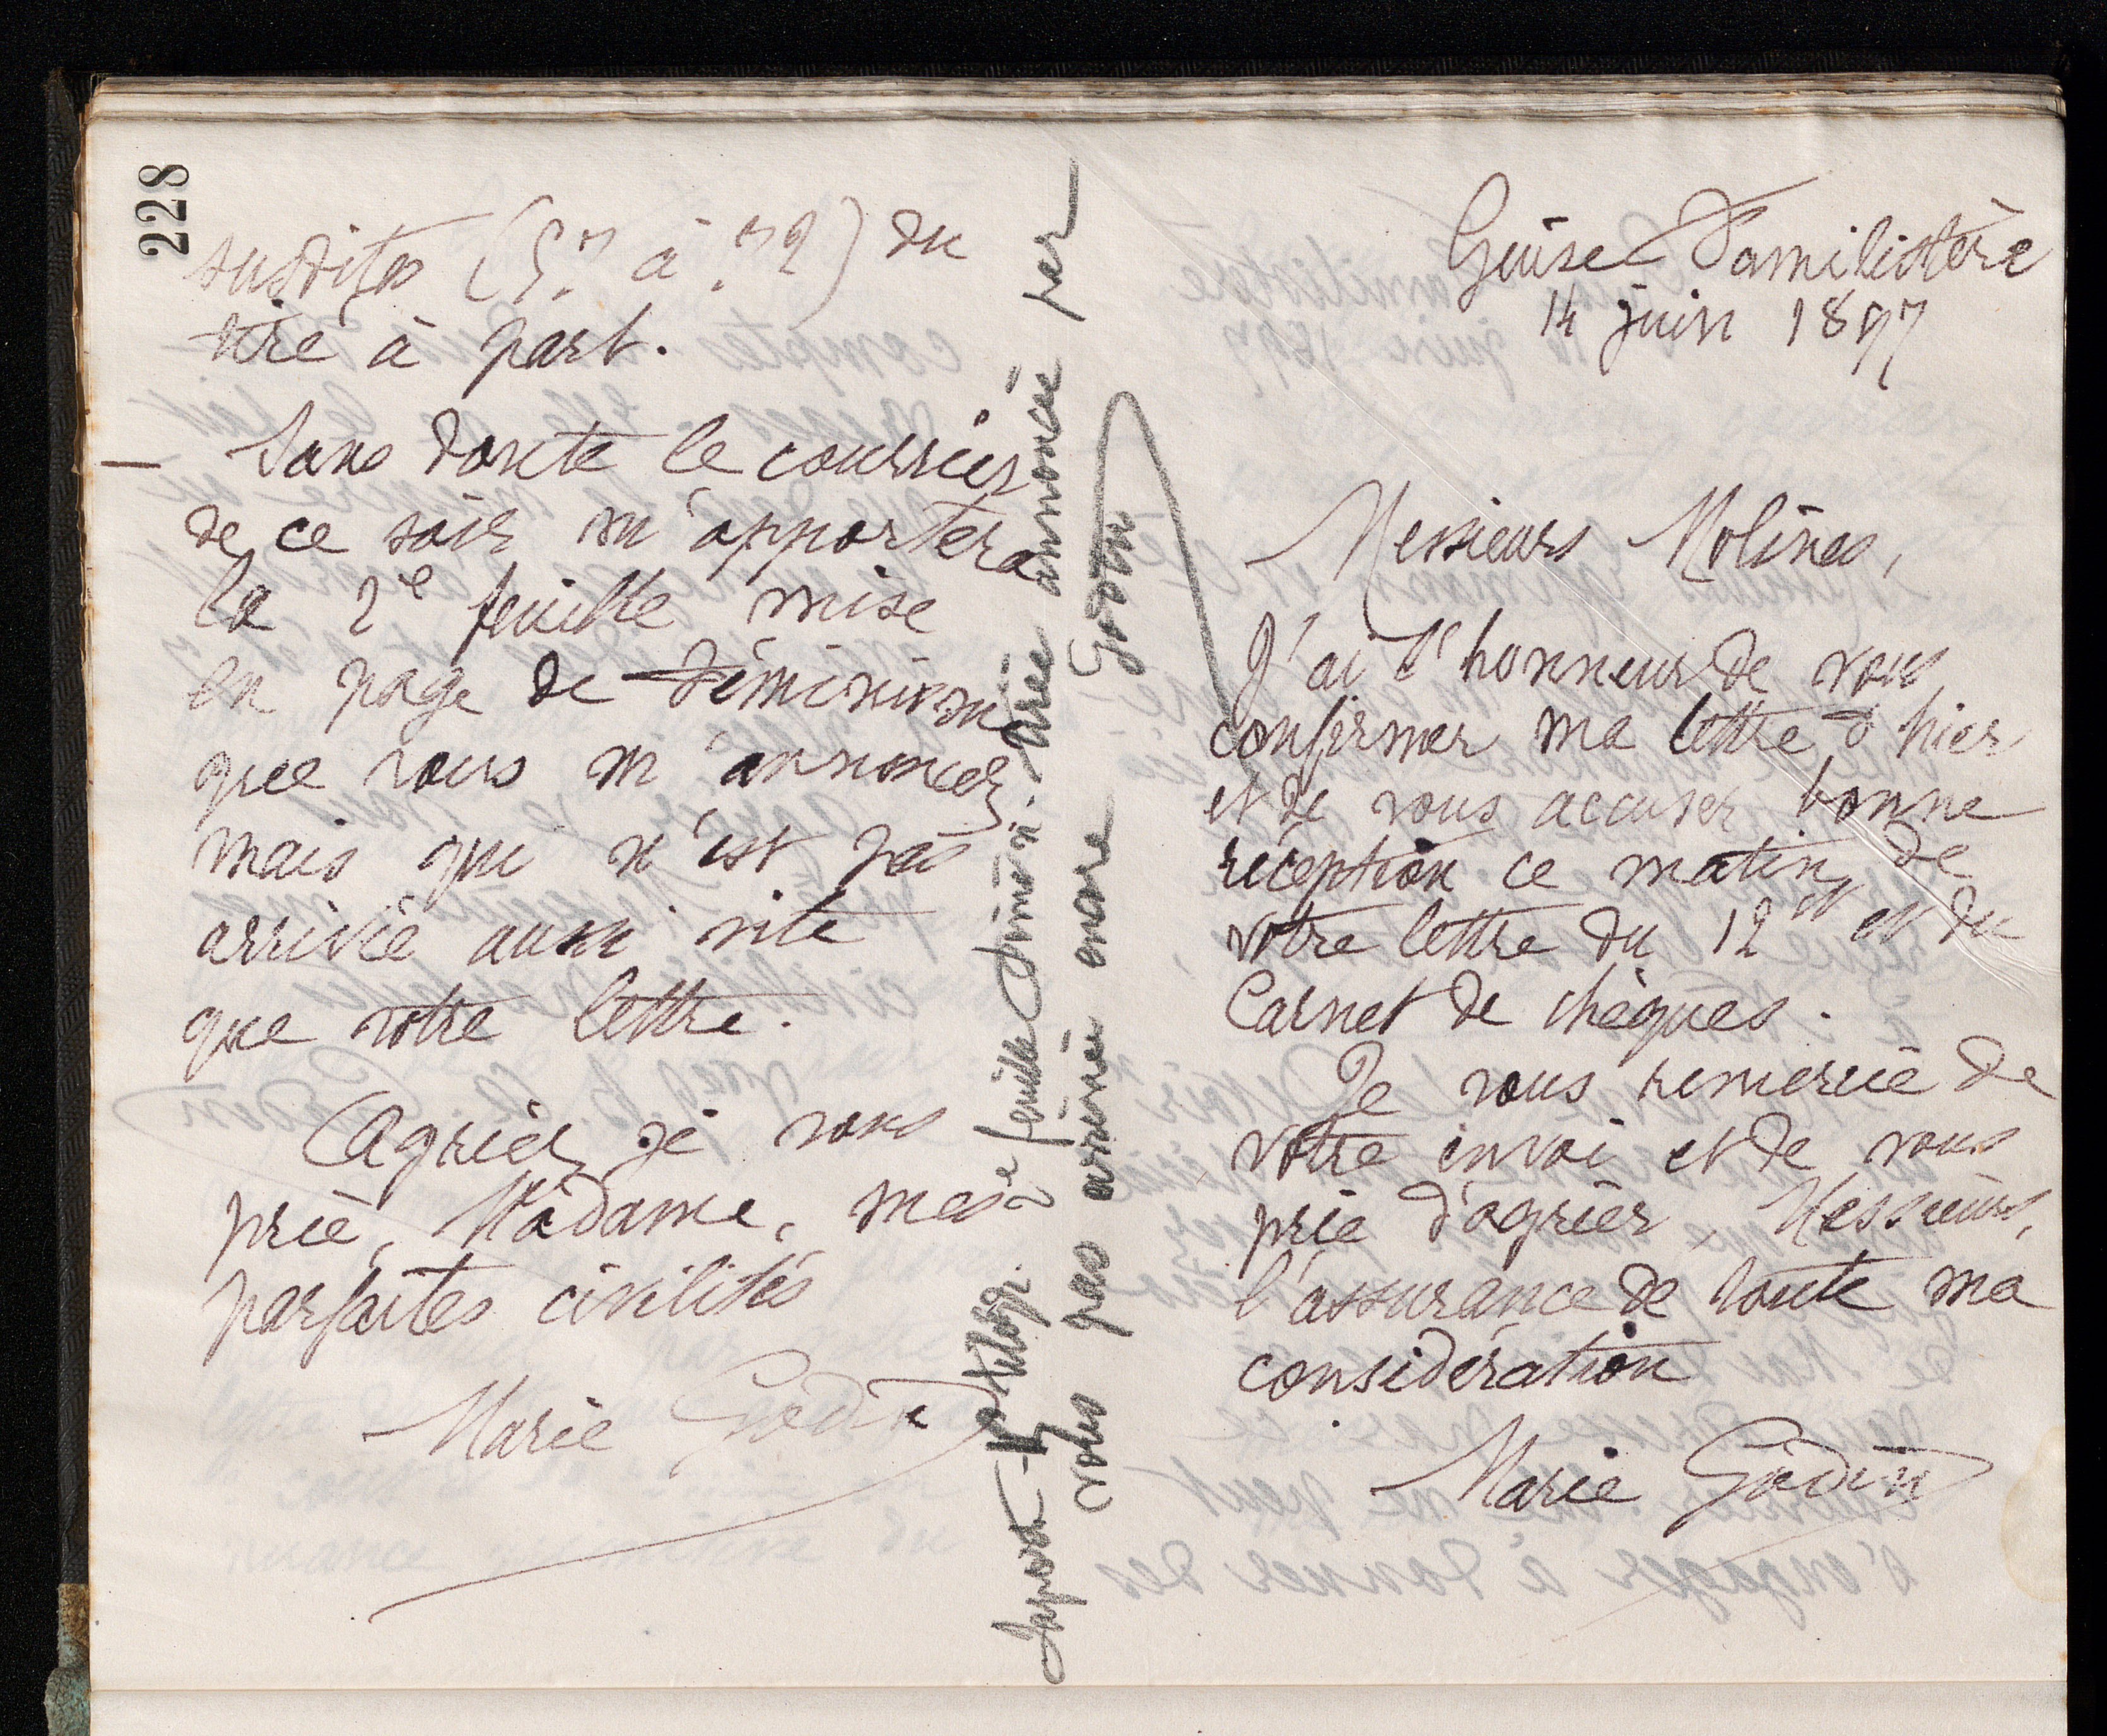 228
susdites (57 à 72) du
tiré à part.
— Sans doute le courrier
de ce soir m'apportera
la 2e feuille mise
en page de Féminisme
que vous m'annoncez
mais qui n'est pas
arrivée aussi vite
que votre lettre.
Agréez je vous
prie, Madame, mes
parfaites civilités
Marie Godin
2e feuille tirée annoncée par
vous pas arrivée encore Godin
Guise Familistère
14 juin 1897
Messieurs Molines,
J'ai l'honneur de vous
confirmer ma lettre d'hier
et de vous accuser bonne
réception ce matin de
votre lettre du 12 et du
Carnet de chèques.
Je vous remercie de
votre envoi et de vous
prie d'agréer, Messieurs,
l'assurance de toute ma
considération
Marie Godin